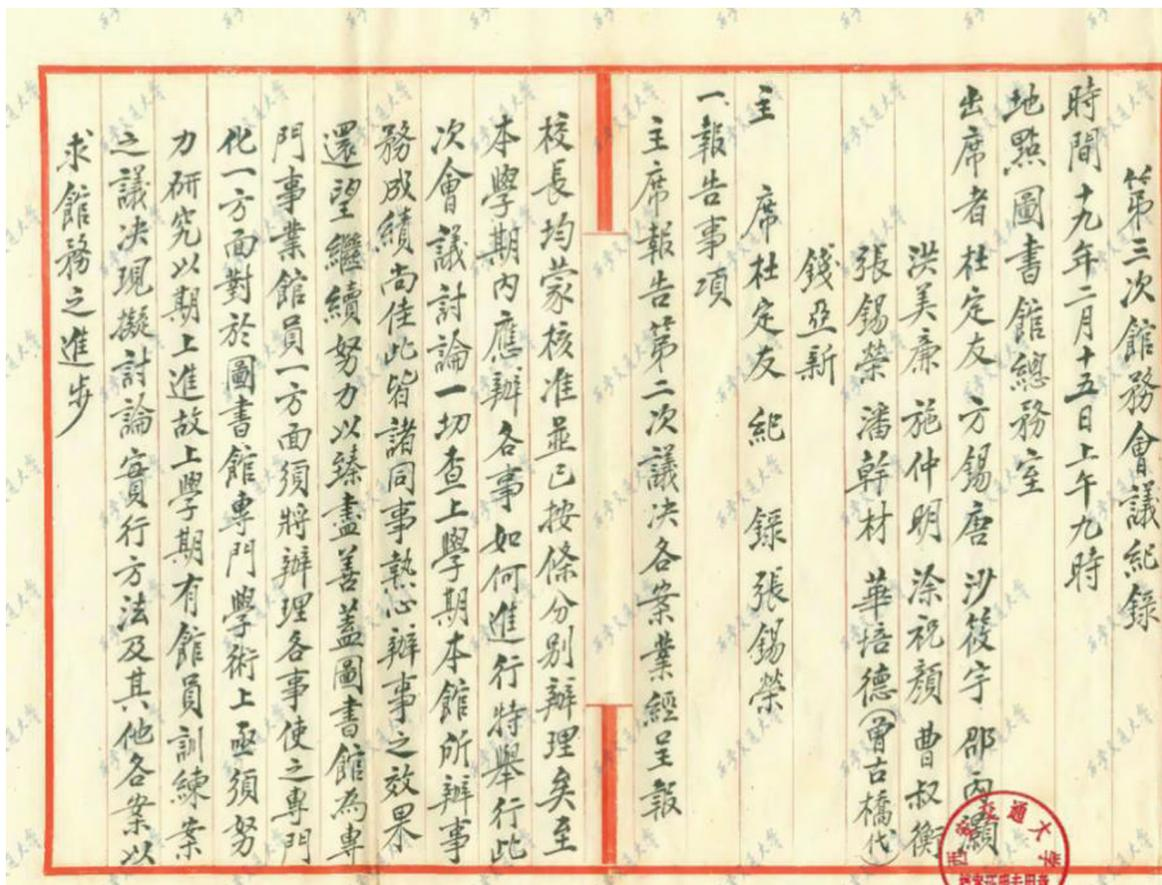 第三次館務會議紀錄
時間十九年二月十五日上午九時
地點圖書館總務室
出席者杜定友 方錫唐 沙筱宇 邵丙灝
洪美廉 施仲明 涂祝顏 曹叔衡
張錫榮 潘幹材 華培德(曾古橋代)
錢亞新
主 席杜定友 紀 錄張錫榮
一、報告事項
主席報告第二次議決各案業經呈報
校長均蒙核准並已按條分別辦理矣至
本學期內應辦各事如何進行特舉行此
次會議討論一切查上學期本館所辦事
務成績尚佳此皆諸同事熱心辦事之效果
還望繼續努力以臻盡善蓋圖書館為專
門事業館員一方面須將辦理各事使之專門
化一方面對於圖書館專門學術上亟須努
力研究以期上進故上學期有館員訓練案
之議決現擬討論實行方法及其他各案以
求館務之進步
西安交通大學